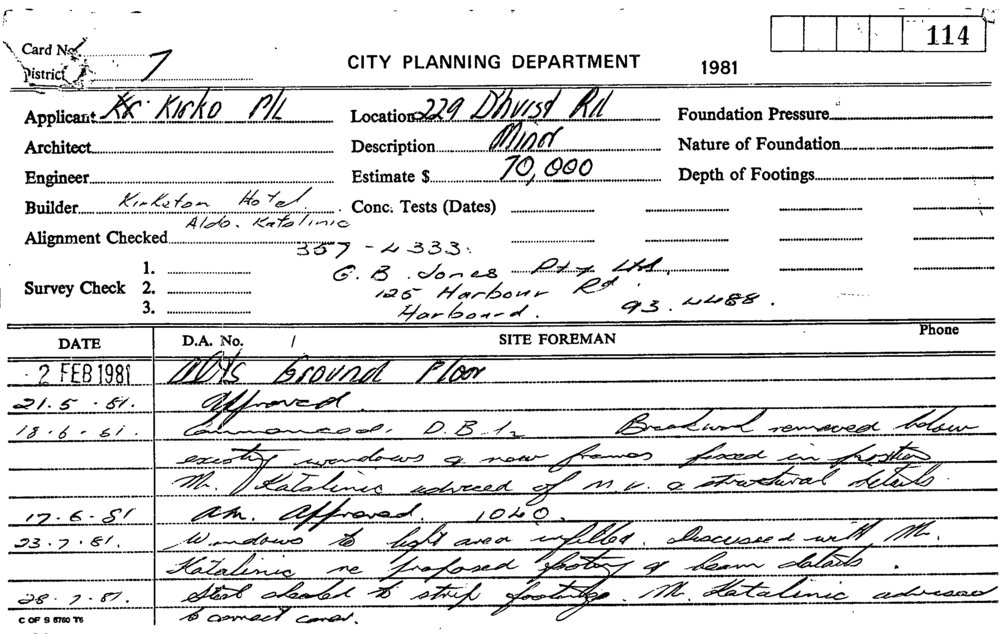 114
Card No.
District 7
CITY PLANNING DEPARTMENT 1981
Applicant Kirko P/L Location 229 D'hurst Rd Foundation Pressure
Architect Description Minor Nature of Foundation
Engineer Estimate $ 70,000 Depth of Footings
Builder Kirketon Hotel Conc. Tests (Dates)
Aldo. Katalinic
Alignment Checked
357-4333.
1.
G. B. Jones Pty Ltd.
Survey Check 2.
125 Harbour Rd
3.
Harbourd. 93.4488.
DATE D.A. No. / SITE FOREMAN Phone
2 FEB 1981 Ground Floor
21.5.81. Approved.
18.6.81. Commenced. D.B. Brickwork removed below
existing windows & new frames fixed in position
Mr. Katalinic advised of N.V. & structural details.
17.6.81 am. Approved. 1040.
23.7.81. Windows to light area infilled. Discussed with Mr.
Katalinic re proposed footing & beam details.
28.7.81. Steel to strip footings. Mr. Katalinic advised
to correct cover.
C OF S 6760 T6